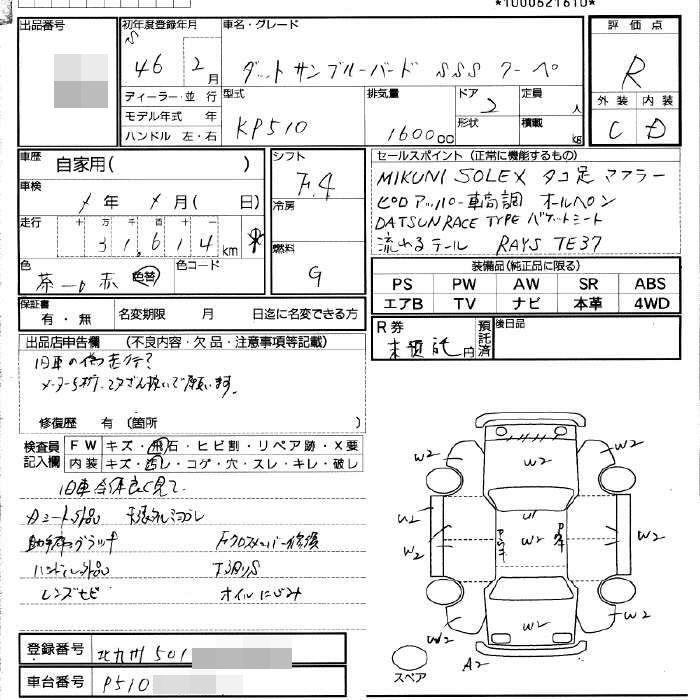 *1000621610*
出品番号
初年度登録年月
S 46 2月
車名・グレード
ダットサンブルーバード SSS クーペ
評価点
R
外装 内装
C D
ディーラー・並行
モデル年式 年
ハンドル 左・右
型式
KP510
排気量
1600 cc
ドア 2
形状
定員 人
積載 kg
車歴
自家用( )
車検
年 月( 日)
走行
十万千百十一
31,614 km
色
茶→赤 色替
色コード
シフト
F.4
冷房
燃料
G
セールスポイント(正常に機能するもの)
MIKUNI SOLEX タコ足 マフラー
ピロアッパー車高調 オールペン
DATSUN RACE TYPE バケットシート
流れるテール RAYS TE37
装備品(純正品に限る)
PS PW AW SR ABS
エアB TV ナビ 本革 4WD
保証書
有・無
名変期限 月 日迄に名変できる方
R券
未預託 円
預託済
後日品
出品店申告欄 (不良内容・欠品・注意事項等記載)
旧車の為走行?
修復歴 有 (箇所 )
検査員記入欄
FW キズ・飛石・ヒビ割・リペア跡・X要
内装 キズ・汚レ・コゲ・穴・スレ・キレ・破レ
旧車全体良く見て
シート外品
Fクロスメンバー修復
ハンドル外品
下回りS
レンズヒビ
オイルにじみ
W2 W2 W2
U2 U1 W2
W2 W2 W2
W2 W2 W2
A2
スペア
登録番号 北九州 501
車台番号 P510